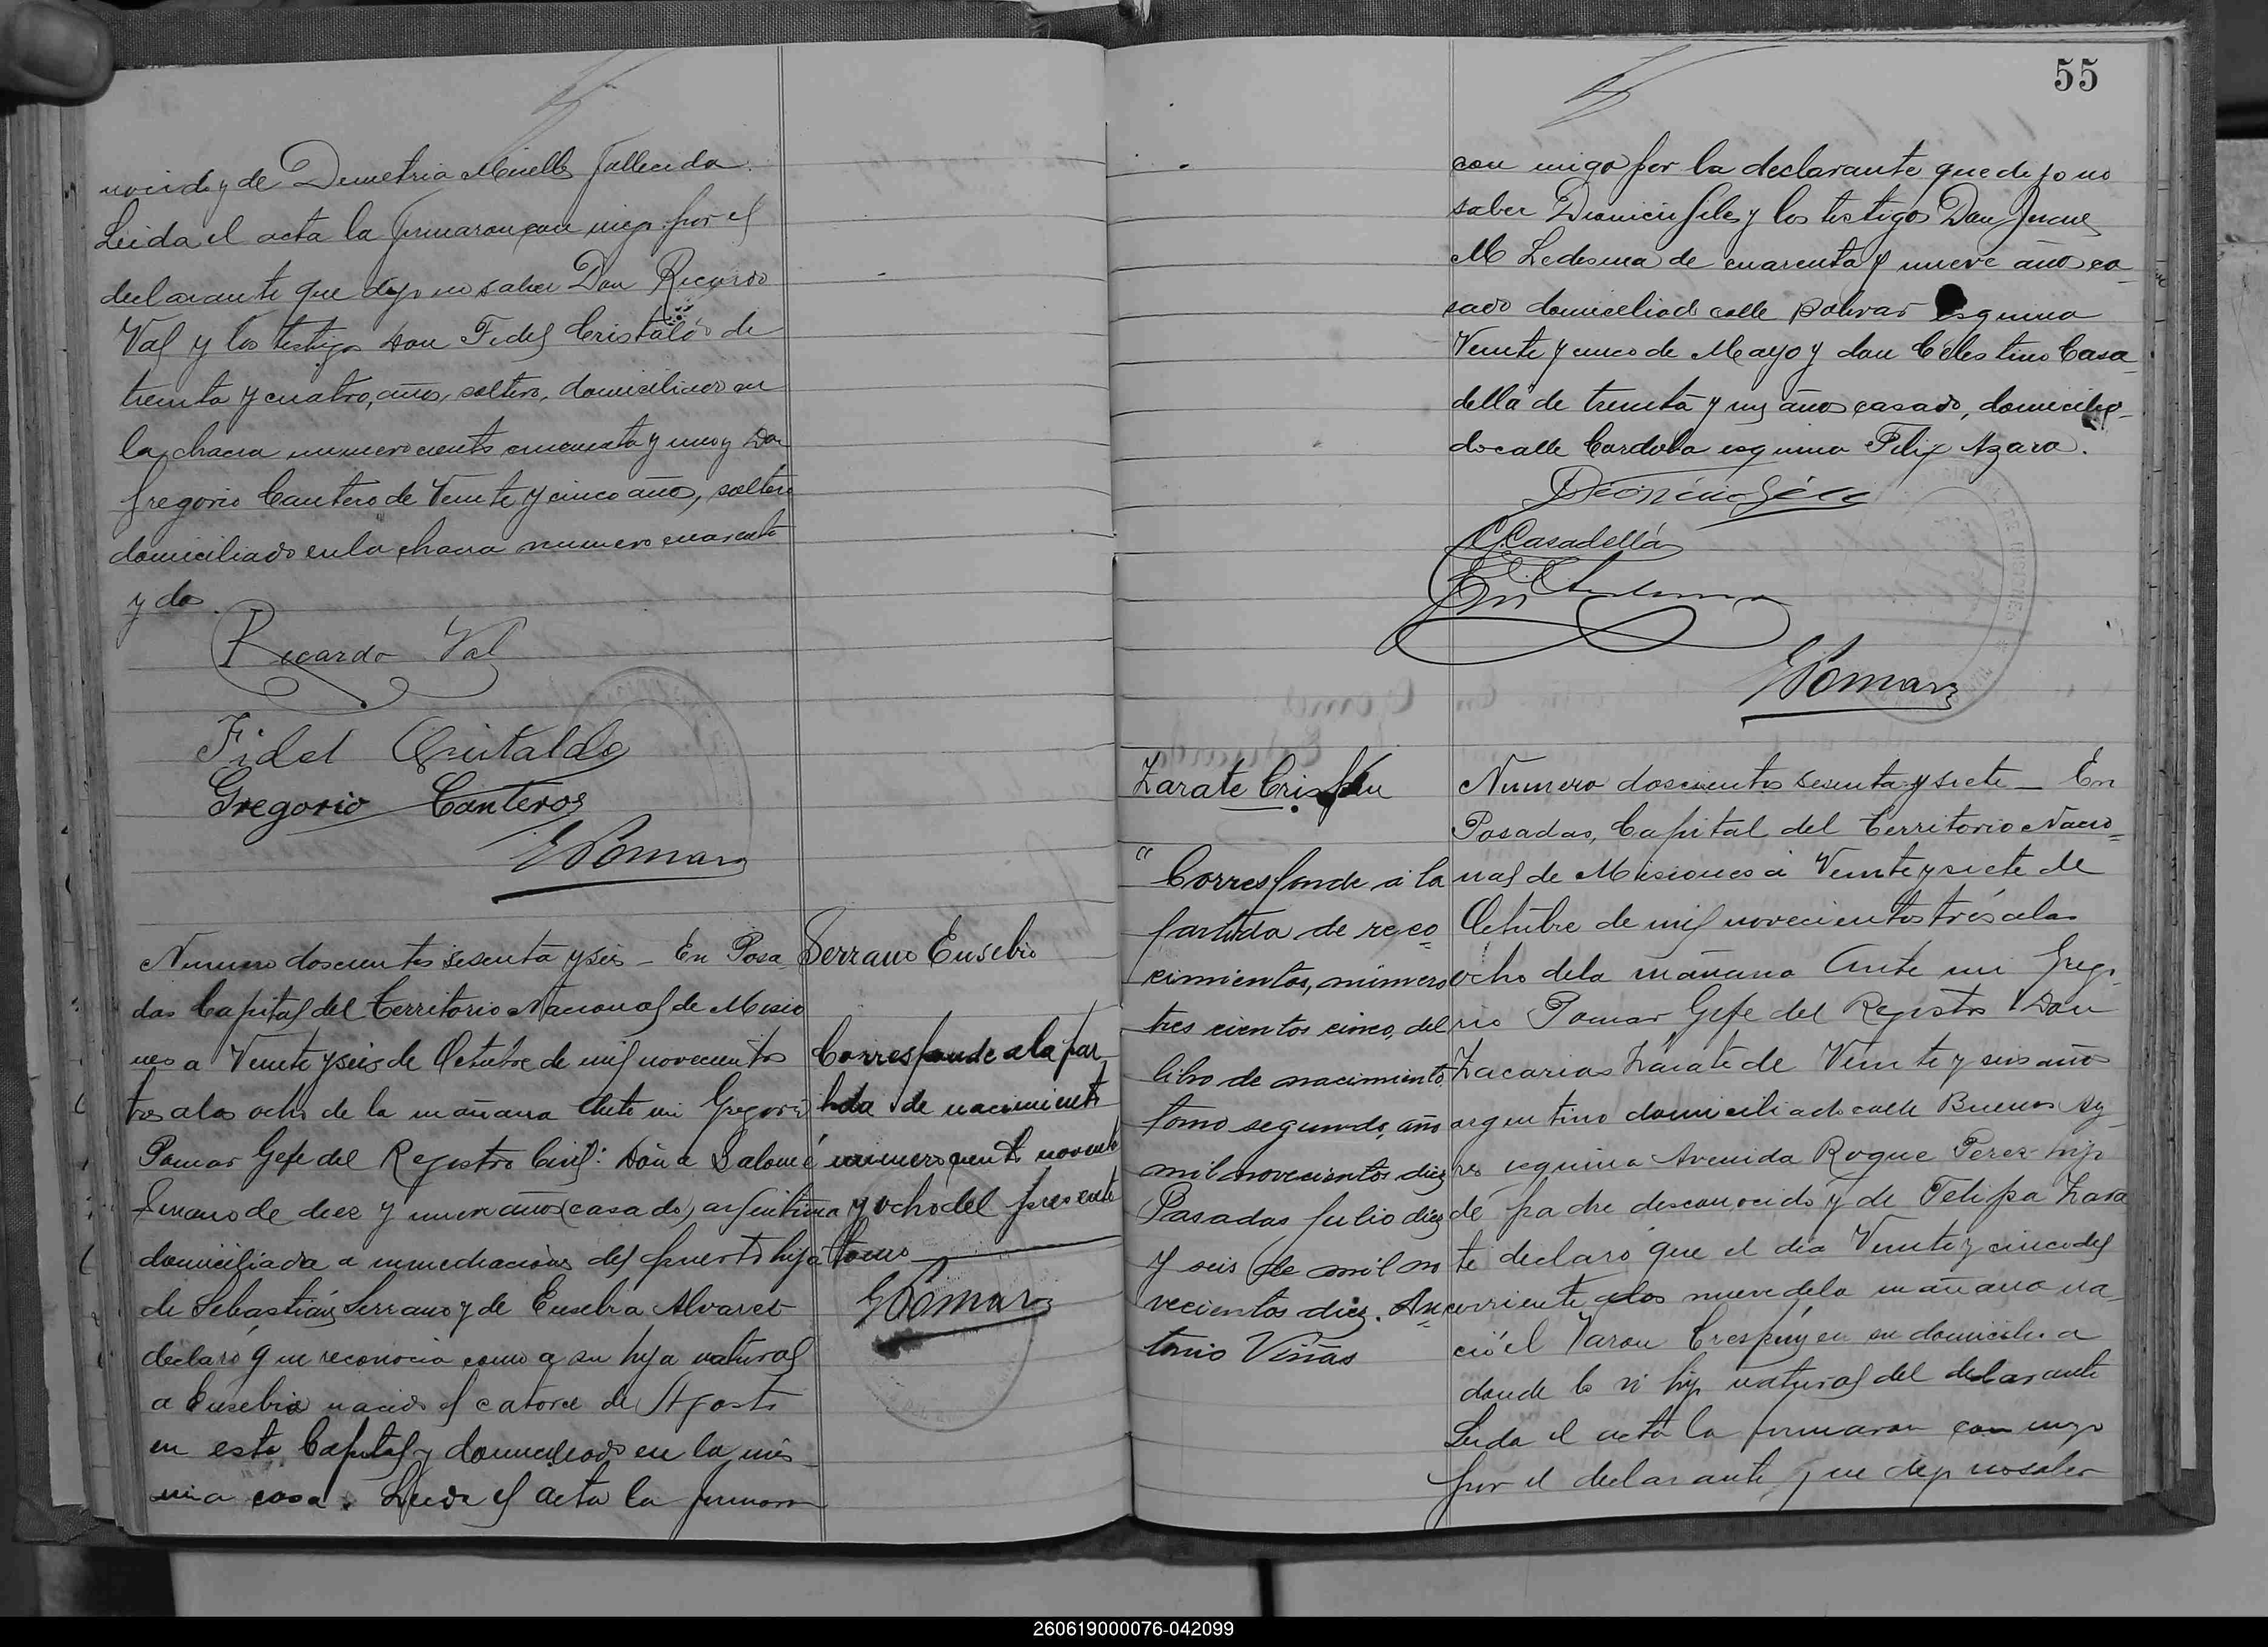 nocido y de Demetria Mirelles fallecida.
Leida el acta la firmaron con migo por el
declarante que dijo no saber Don Ricardo
Val y los testigos Don Fidel Cristaldo de
treinta y cuatro, años, soltero, domiciliado en
la chacra numero ciento cincuenta y uno y Don
Gregorio Cantero de Veinte y cinco años, soltero
domiciliado en la chacra numero cuarenta
y dos.
Ricardo Val
Fidel Cristaldo
Gregorio Canteros
G Pomar
Numero doscientos sesenta y seis - En Posa
das Capital del Territorio Nacional de Misio
nes a Veinte y seis de Octubre de mil novecientos
tres a las ocho de la mañana Ante mi Gregorio
Pomar Gefe del Registro Civil: Doña Salomé
Serrano de diez y nueve años (casado) argentina
domiciliada a inmediacions del puerto hija
de Sebastián Serrano y de Eusebia Alvarez
declaró que reconocia como a su hijo natural
a Eusebio nacido el catorce de Agosto
en esta Capital y domiciliado en la mis
mia casa. Leida el acta la firmaron
Serrano Eusebio
Corresponde a la par
tida de nacimiento
numero ciento noventa
y ocho del presente
tomo
G Pomar
55
con migo por la declarante que dijo no
saber Dionicio Giles y los testigos Don Juan
M Ledesma de cuarenta y nueve años ca
sado domiciliado calle Bolivar esquina
Veinte y cinco de Mayo y don Celestino Casa
della de treinta y un años casado, domicilia
do calle Cordoba esquina Felix Azara.
Dionicio Giles
C. Casadellá
G Pomar
Zarate Crispin
"Corresponde á la
partida de reco
cimientos, número
tres cientos cinco, del
libro de nacimiento
tomo segundo, año
mil novecientos diez
Posadas Julio diez
y seis de mil no
vecientos diez. An
tonio Viñas
Numero doscientos sesenta y siete - En
Posadas, Capital del Territorio Nacio
nal de Misiones á Veinte y siete de
Octubre de mil novecientos trés a las
ocho de la mañana Ante mi Grego
rio Pomar Gefe del Registro Don
Zacarias Zárate de Veinte y seis años
argentino domiciliado calle Buenos Ay
res esquina Avenida Roque Perez hijo
de padre desconocido y de Felipa Zara
te declaro que el dia Veinte y cinco del
corriente a las nueve de la mañana na
ció el Varon Crespin en su domicilio a
donde lo vi hijo natural del declarante
Leida el acta la firmaron con migo
por el declarante que dijo no saber
260619000076-042099